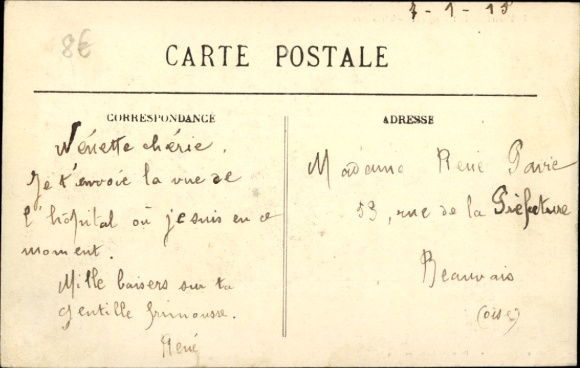 7-1-15
8€
CARTE POSTALE
CORRESPONDANCE
Nénette chérie.
Je t'envoie la vue de
l'hôpital où je suis en ce
moment.
Mille baisers sur ta
gentille frimousse.
René
ADRESSE
Madame René Pavie
53, rue de la Préfecture
Beauvais
(oise)